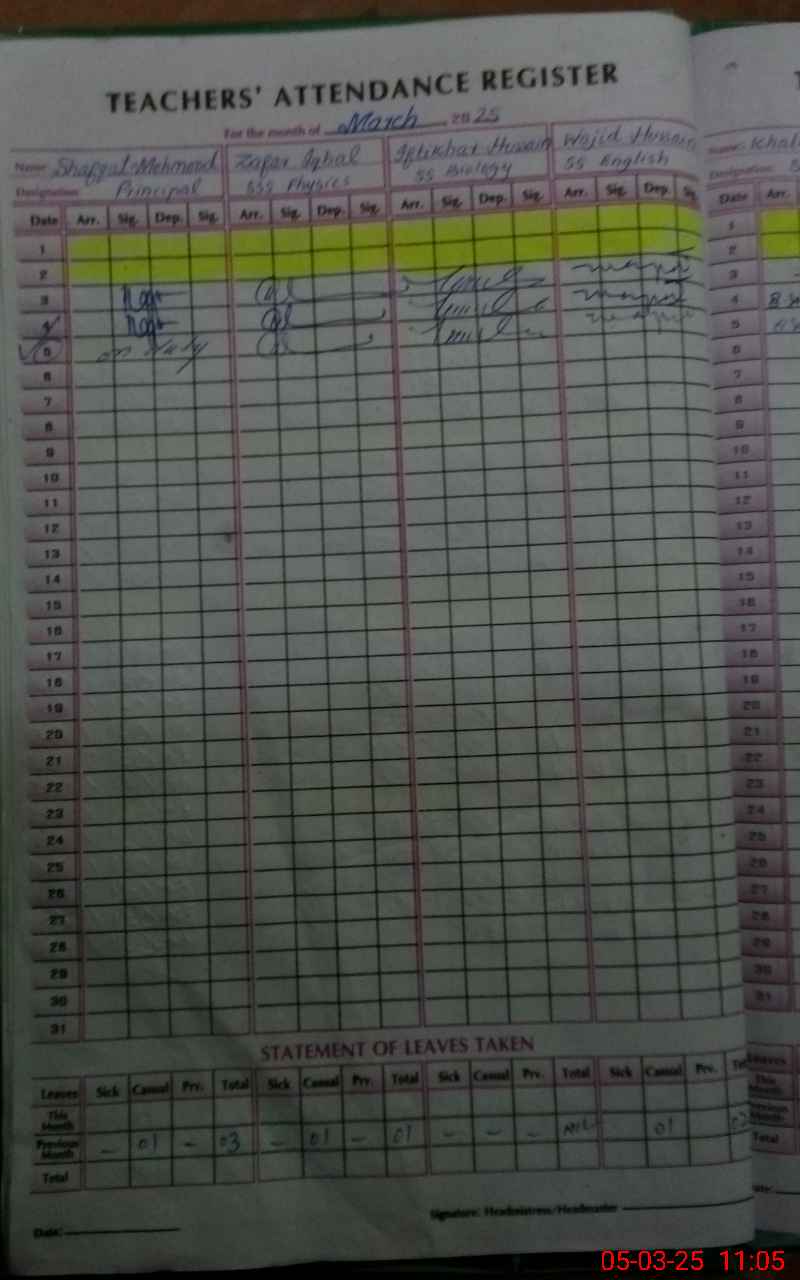 TEACHERS' ATTENDANCE REGISTER
For the month of March 2025
Name Shafqat Mehmood Zafar Iqbal Iftikhar Hussain Wajid Hussain
Designation Principal SSS Physics SS Biology SS English
Date Arr. Sig. Dep. Sig. Arr. Sig. Dep. Sig. Arr. Sig. Dep. Sig. Arr. Sig. Dep. Sig. Date Arr.
1 1
2 2
3 3
4 4
5 on duty 5
6 6
7 7
8 8
9 9
10 10
11 11
12 12
13 13
14 14
15 15
16 16
17 17
18 18
19 19
20 20
21 21
22 22
23 23
24 24
25 25
26 26
27 27
28 28
29 29
30 30
31 31
STATEMENT OF LEAVES TAKEN
Leaves Sick Casual Prv. Total Sick Casual Prv. Total Sick Casual Prv. Total Sick Casual Prv. Leaves
This Month This Month
Previous Month – 01 – 03 – 01 – 01 – – – Nil 01 Previous Month
Total Total
Signature: Headmistress/Headmaster
Date:
05-03-25 11:05